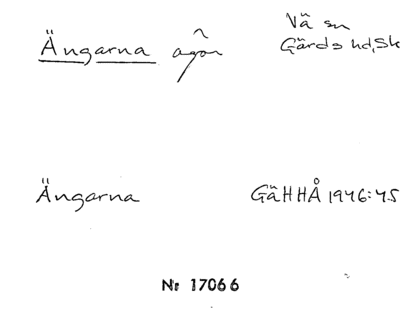 Ängarna agor Vä sn
Gärds hd, Sk
Ängarna GäHHÅ 1946:45
Nr 17066